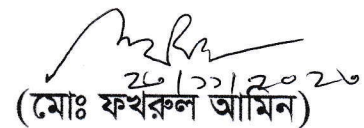 ২৬/১১/২০২৬
(মোঃ ফখরুল আমিন)